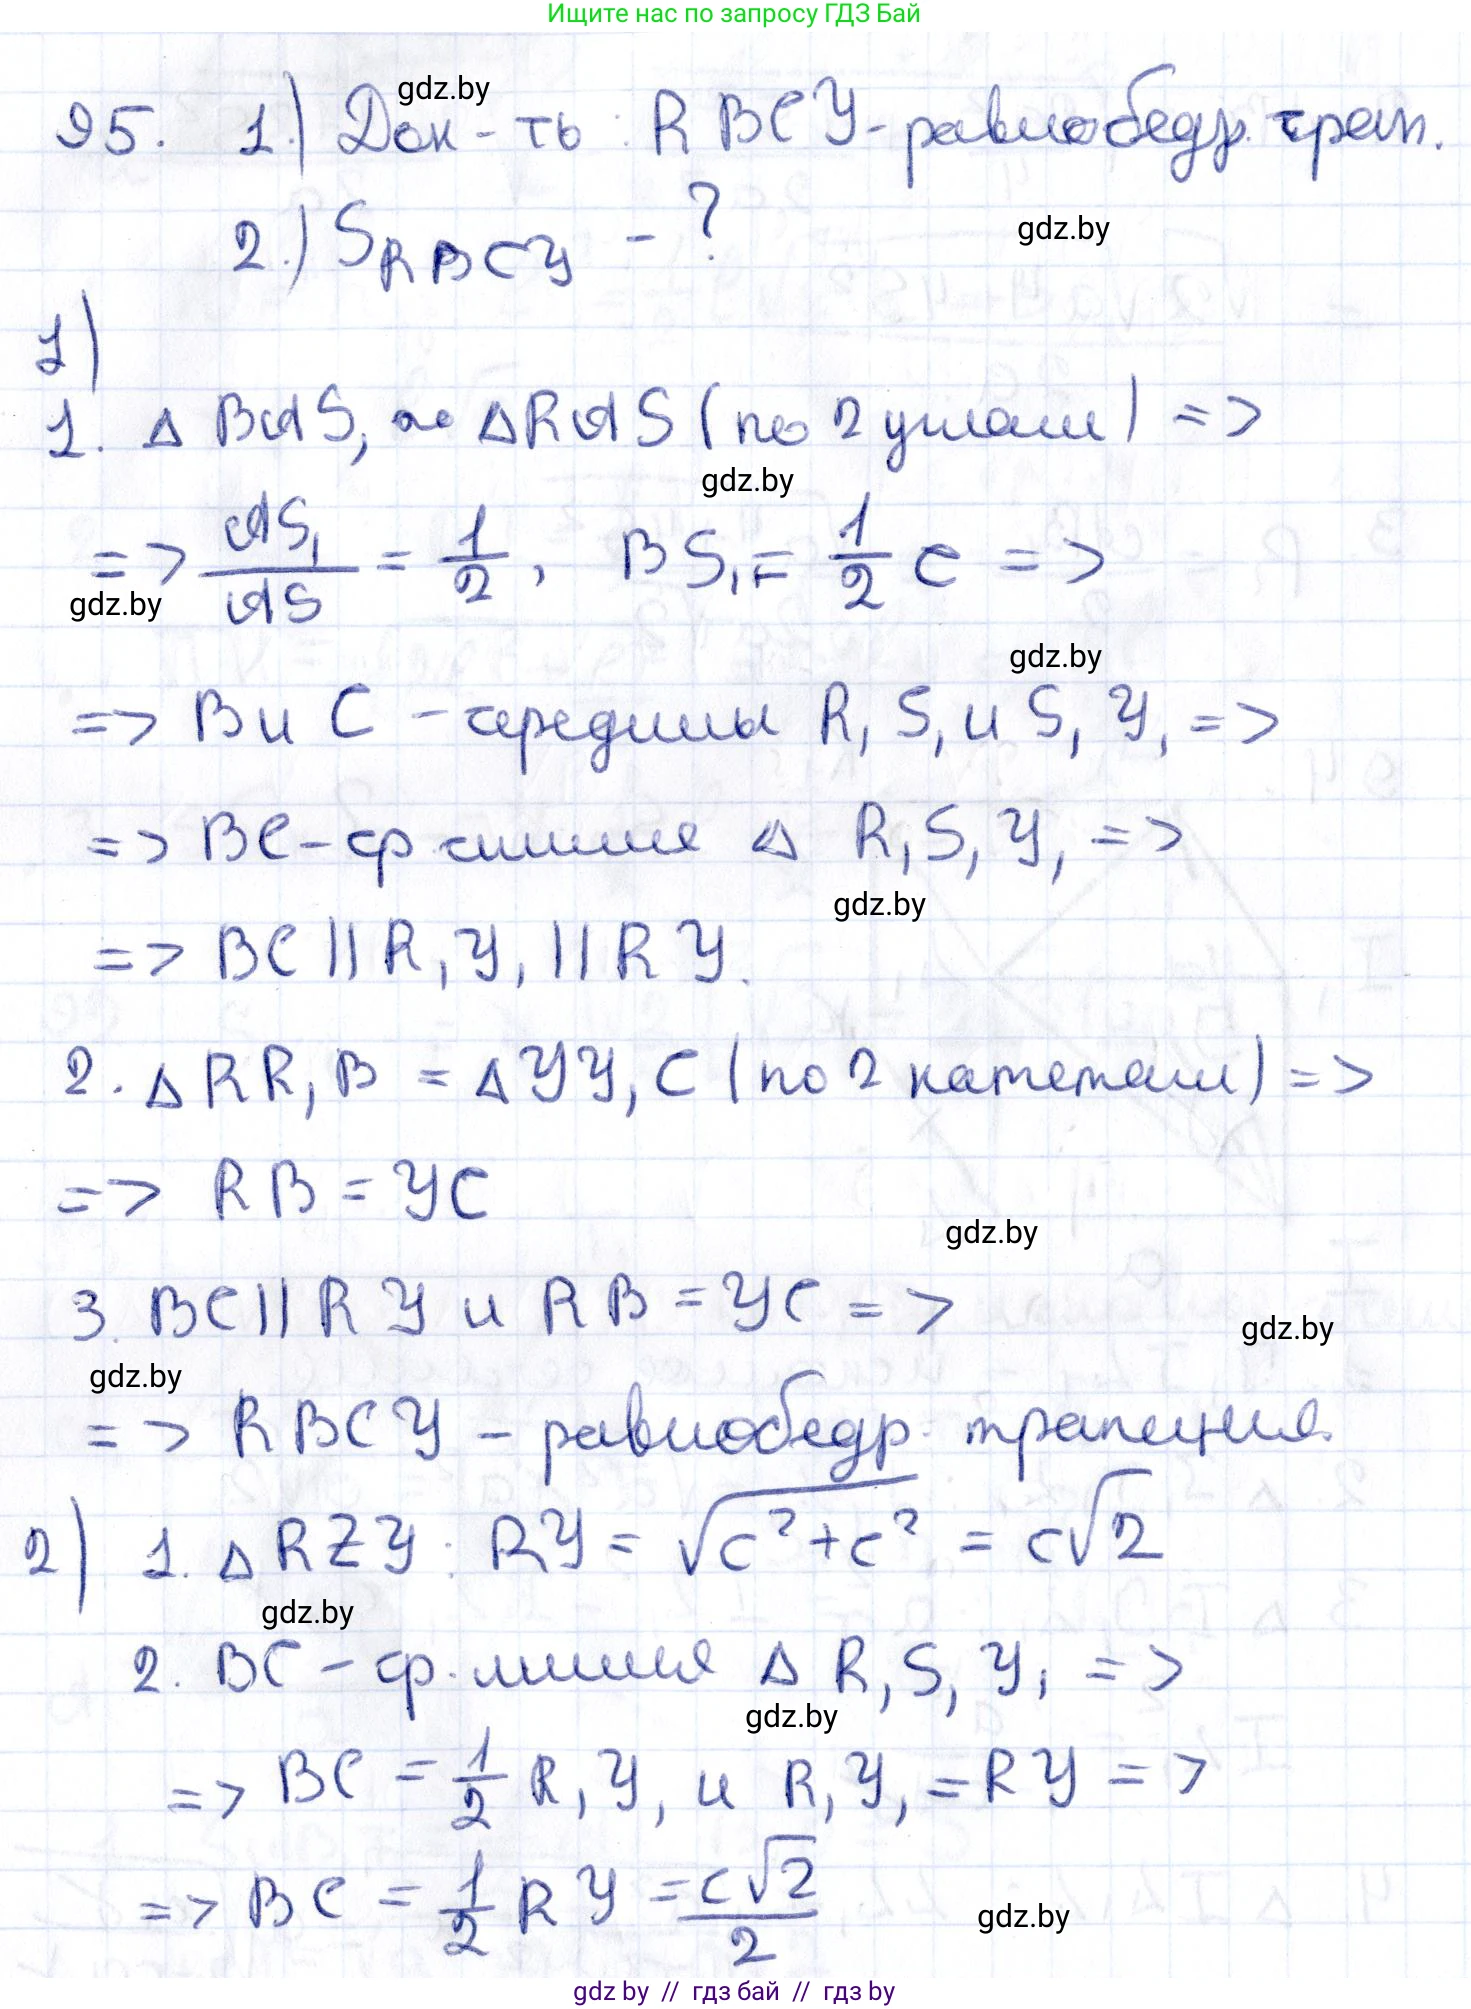 Ищите нас по запросу ГДЗ Бай
gdz.by
95. 1.) Док-ть: RBCY-равнобедр. трап.
2.) S_RBCY - ?
gdz.by
1)
1. △ BAS₁ ~ △RAS (по 2 углам) =>
gdz.by
=> AS₁/AS = 1/2, BS₁ = 1/2 c =>
gdz.by
gdz.by
=> B и C - середины R₁S₁ и S₁Y₁ =>
=> BC - ср. линия △ R₁S₁Y₁ =>
gdz.by
=> BC || R₁Y₁ || RY.
2. △RR₁B = △YY₁C (по 2 катетам) =>
=> RB = YC
gdz.by
3. BC || RY и RB = YC =>
gdz.by
gdz.by
=> RBCY - равнобедр. трапеция.
2) 1. △RZY: RY = √(c²+c²) = c√2
gdz.by
2. BC - ср. линия △ R₁S₁Y₁ =>
gdz.by
=> BC = 1/2 R₁Y₁ и R₁Y₁ = RY =>
=> BC = 1/2 RY = c√2/2
gdz.by
gdz by // гдз бай // гдз by